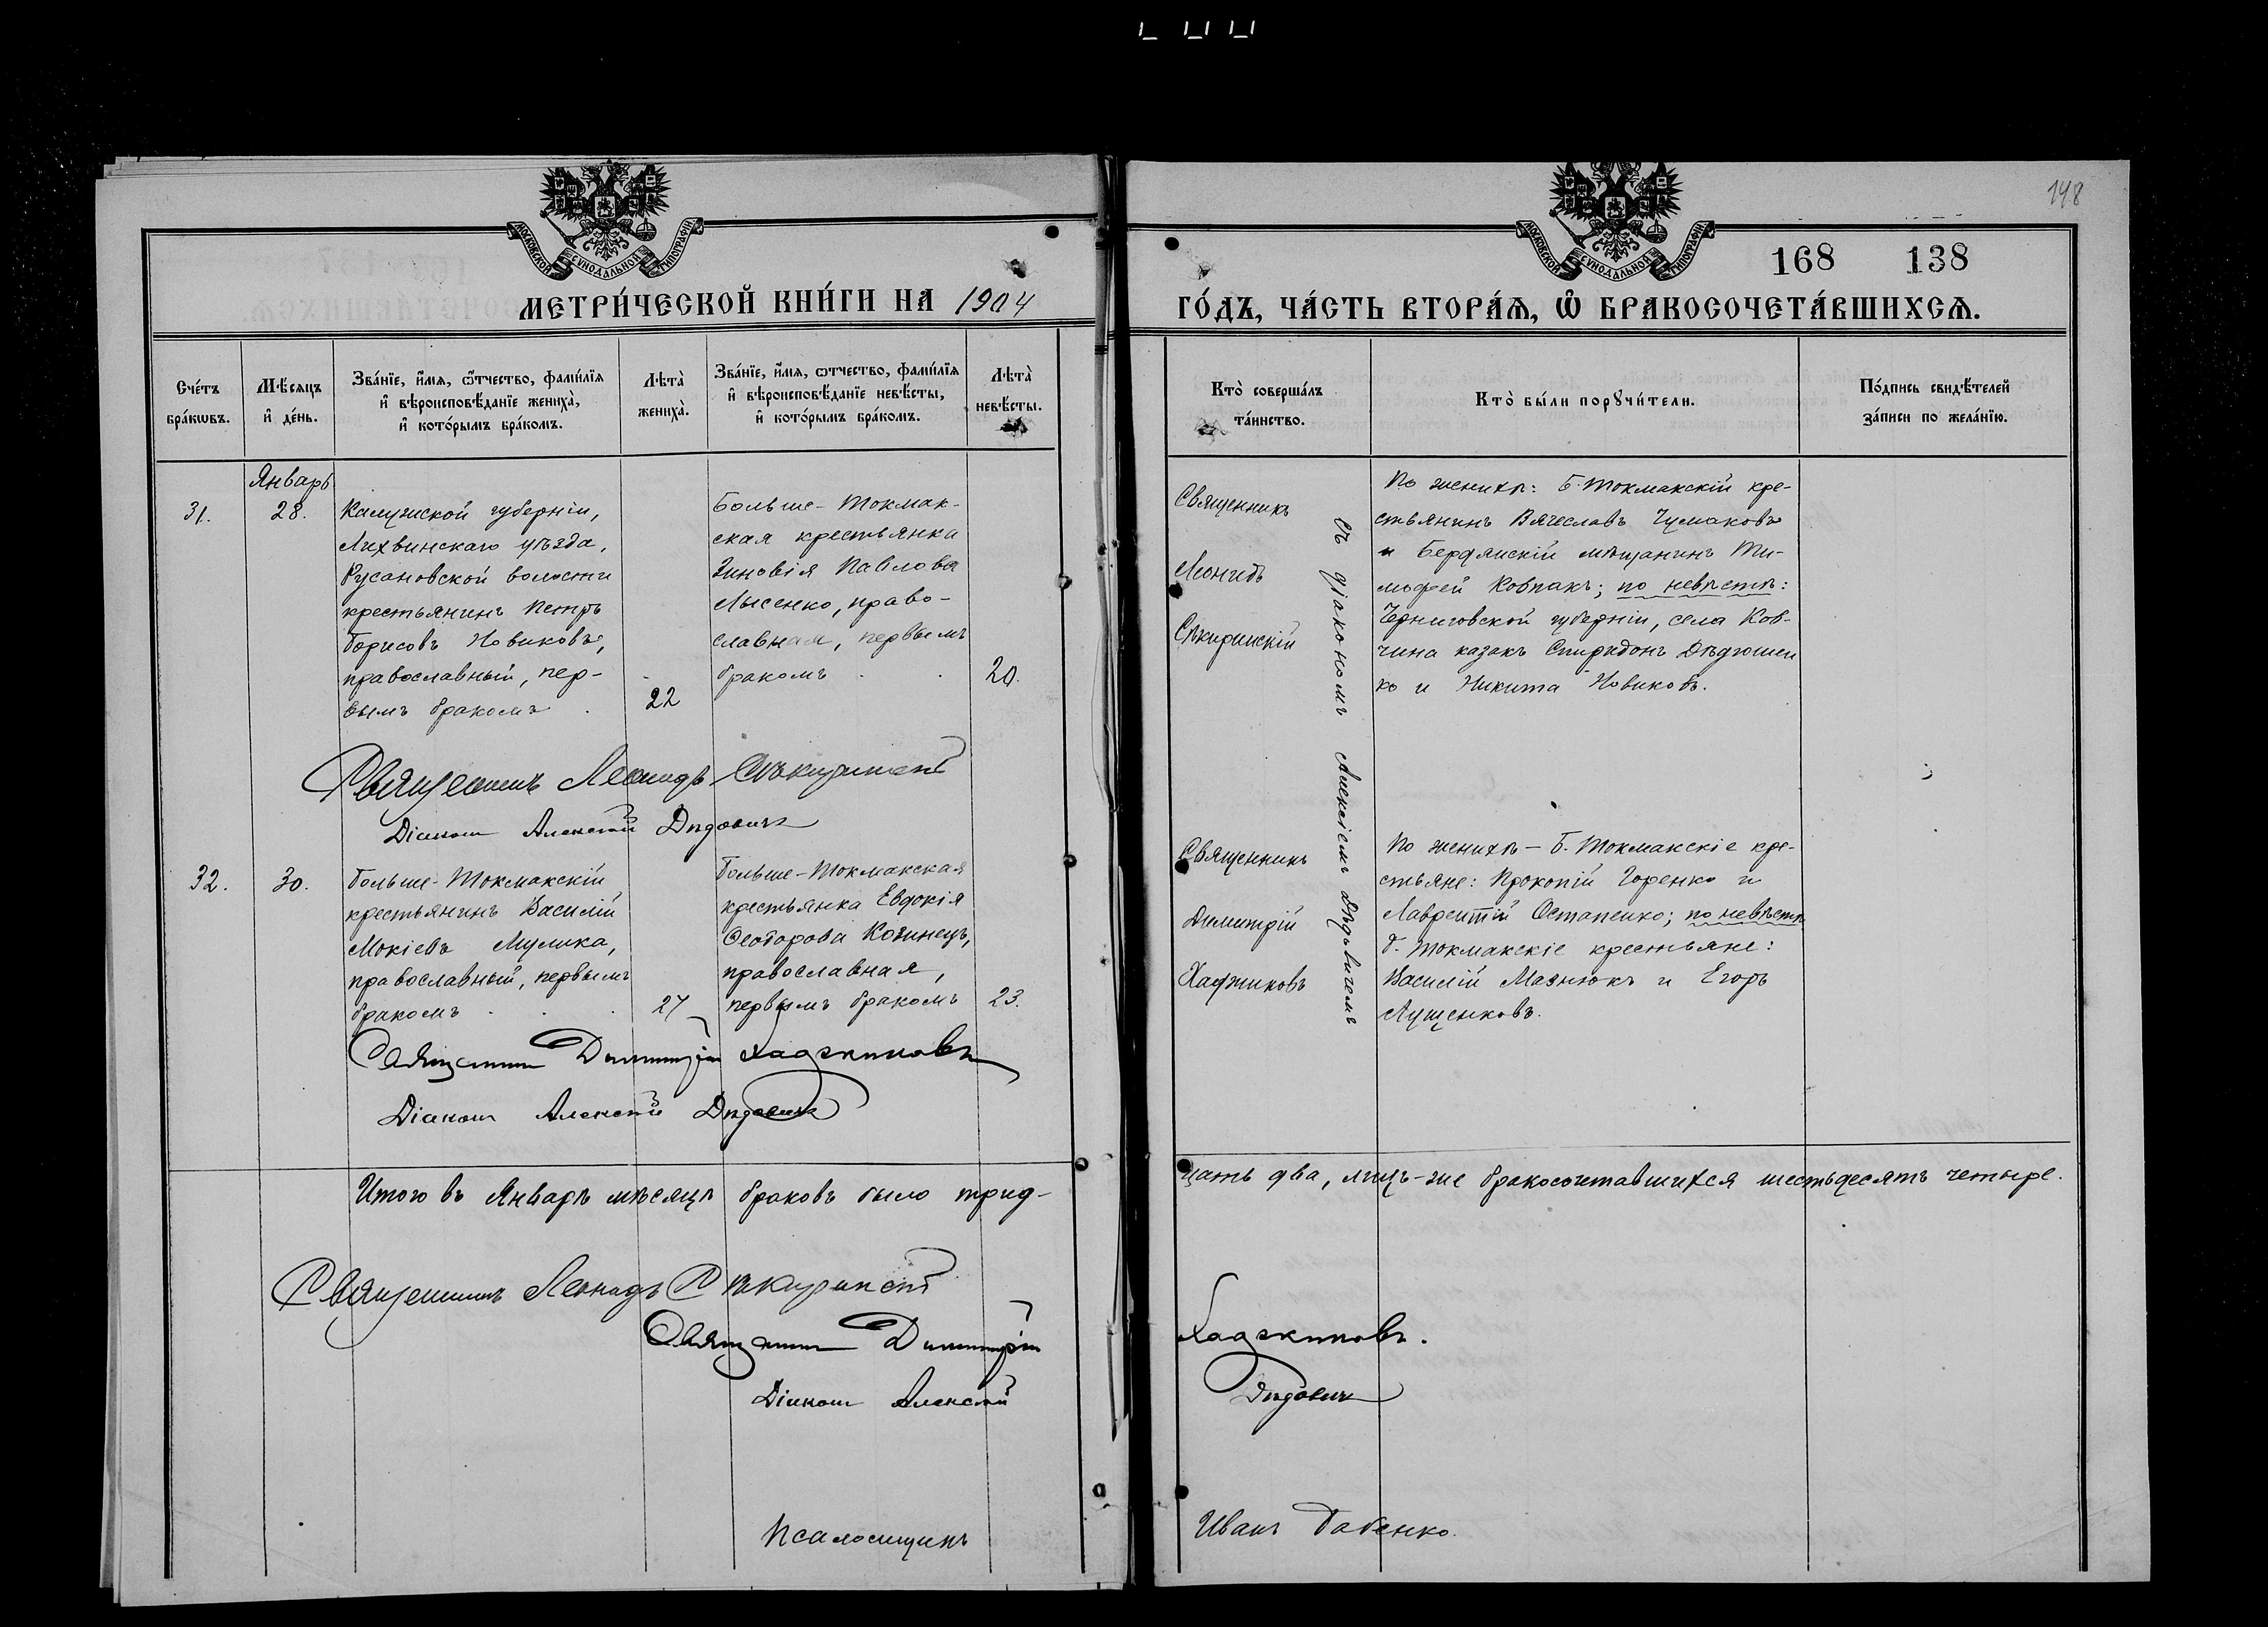 148
168 138
МОСКОВСКОЙ СѴНОДАЛЬНОЙ ТИПОГРАФІИ
МОСКОВСКОЙ СѴНОДАЛЬНОЙ ТИПОГРАФІИ
МЕТРИ́ЧЕСКОЙ КНИ́ГИ НА 1904
ГО́ДЪ, ЧА́СТЬ ВТОРА́Ѧ, Ѽ БРАКОСОЧЕТА́ВШИХСѦ.
Сче́тъ
бра́кѡвъ.
Мѣ́сяцъ
и҆ де́нь.
Зва́нїе, и҆́мѧ, ѻ҆́тчество, фами́лїѧ
и҆ вѣроисповѣ́данїе жениха̀,
и҆ кото́рымъ бра́комъ.
Лѣта̀
жениха̀.
Зва́нїе, и҆́мѧ, ѻ҆́тчество, фами́лїѧ
и҆ вѣроисповѣ́данїе невѣ́сты,
и҆ кото́рымъ бра́комъ.
Лѣта̀
невѣ́сты.
Кто̀ соверша́лъ
та́инство.
Кто̀ бы́ли порꙋчи́тели.
По́дпись свидѣ́телей
за́писи по жела́нїю.
Январь
31.
28.
Калужской губерніи,
Лихвинскаго уѣзда,
Русановской волости
крестьянинъ Петръ
Борисовъ Новиковъ,
православный, пер-
вымъ бракомъ
22
Больше-Токмак-
ская крестьянка
Зиновія Павлова
Лысенко, право-
славная, первымъ
бракомъ
20.
Священникъ
Леонидъ
Сѣкиринскій
съ діакономъ Алексіемъ Дѣдовичемъ
По женихѣ: Б. Токмакскій кре-
стьянинъ Вячеславъ Чумаковъ
и Бердянскій мѣщанинъ Ти-
мофей Ковпакъ; по невѣстѣ:
Черниговской губерніи, села Ков-
чина казакъ Спиридонъ Дѣдюшен
ко и Никита Новиковъ.
Священникъ Леонидъ Сѣкиринскій
Діаконъ Алексій Дѣдовичъ
32.
30.
Больше-Токмакскій
крестьянинъ Василій
Мокіевъ Мулика,
православный, первымъ
бракомъ
27
Больше-Токмакская
крестьянка Евдокія
Ѳеодорова Козинецъ,
православная,
первымъ бракомъ
23.
Священникъ
Димитрій
Хаджиковъ
По женихѣ – Б. Токмакскіе кре-
стьяне: Прокопій Горенко и
Лаврентій Остапенко; по невѣстѣ
Б. Токмакскіе крестьяне:
Василій Мазнюкъ и Егоръ
Лущенковъ.
Священникъ Димитрій Хаджиковъ
Діаконъ Алексій Дѣдовичъ
Итого въ Январѣ мѣсяцѣ браковъ было трид-
цать два, лицъ-же бракосочетавшихся шестьдесятъ четыре.
Священникъ Леонидъ Сѣкиринскій
Священникъ Димитрій Хаджиковъ.
Діаконъ Алексій Дѣдовичъ
Псаломщикъ Иванъ Бабенко.